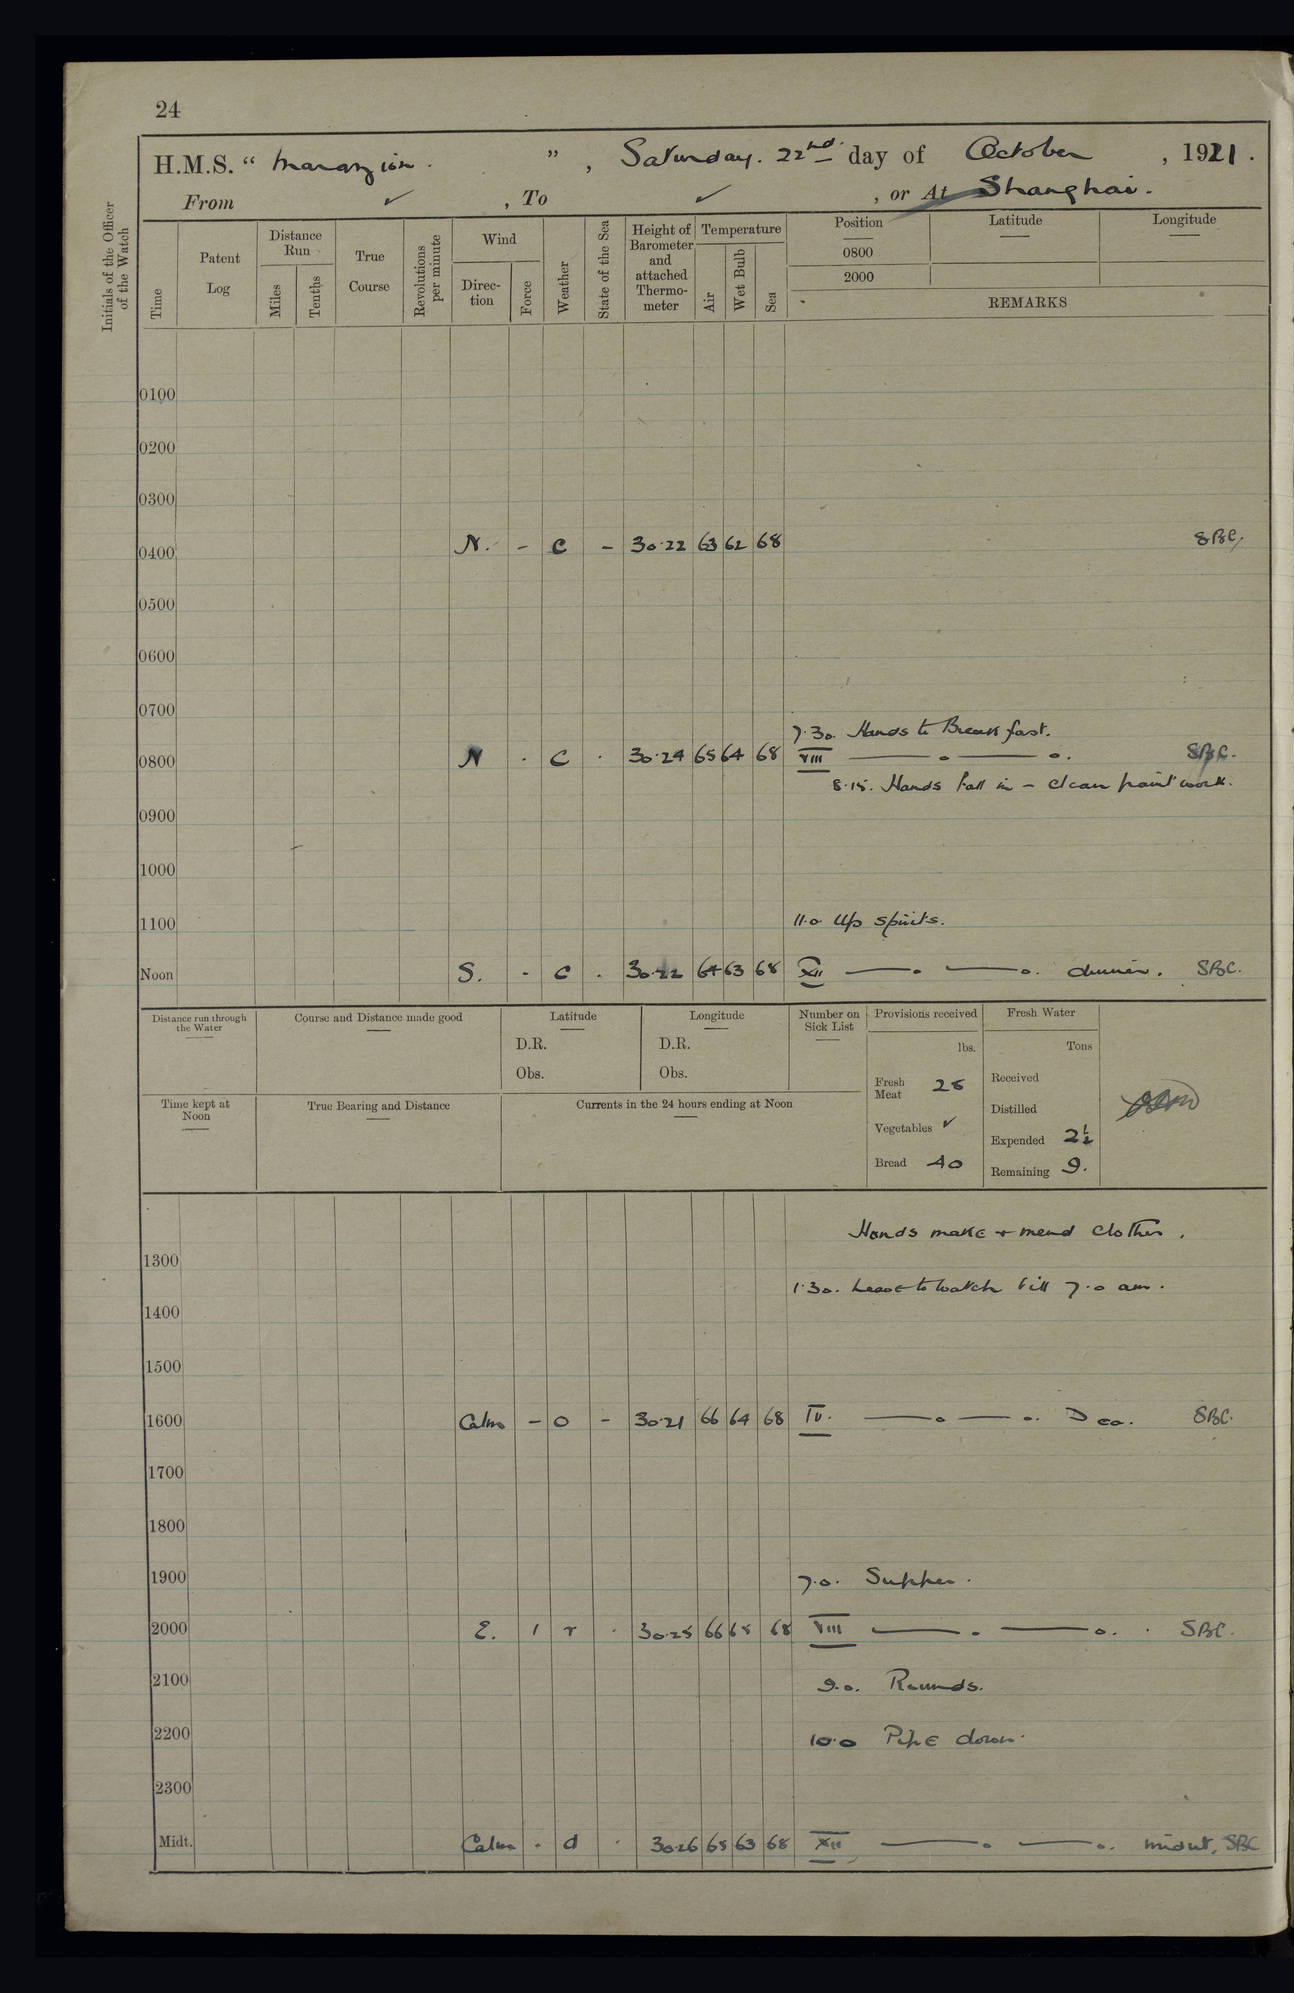 24
H.M.S. " Marazion. " , Saturday. 22nd day of October , 1921 .
From ✓ , To ✓ , or At Shanghai.
Initials of the Officer of the Watch
Time
Patent Log
Distance Run
Miles
Tenths
True Course
Revolutions per minute
Wind
Direction
Force
Weather
State of the Sea
Height of Barometer and attached Thermometer
Temperature
Air
Wet Bulb
Sea
Position
Latitude
Longitude
0800
2000
REMARKS
0100
0200
0300
0400 N. - c - 30.22 63 62 68 SBC.
0500
0600
0700
7.30. Hands to Breakfast.
0800 N . C . 30.24 65 64 68 VIII —— o —— o. SBC.
8.15. Hands fall in – clean paint work.
0900
1000
1100 11.0 Up spirits.
Noon S. - c . 30.22 64 63 68 XII —— o —— o. dinner. SBC.
Distance run through the Water
Course and Distance made good
Latitude
D.R.
Obs.
Longitude
D.R.
Obs.
Number on Sick List
Provisions received
lbs.
Fresh Meat 28
Vegetables ✓
Bread 40
Fresh Water
Tons
Received
Distilled
Expended 2½
Remaining 9.
Time kept at Noon
True Bearing and Distance
Currents in the 24 hours ending at Noon
Hands make + mend clothes.
1300
1.30. Leave to watch till 7.0 am.
1400
1500
1600 Calm - o - 30.21 66 64 68 IV. —— o —— o. SBC.
1700
1800
1900 7.0. Supper.
2000 E. 1 r . 30.25 66 65 68 VIII —— o —— o. SBC.
2100 9.0. Rounds.
2200 10.0 Pipe down.
2300
Midt. Calm - d . 30.26 65 63 68 XII —— o —— o. midnt. SBC